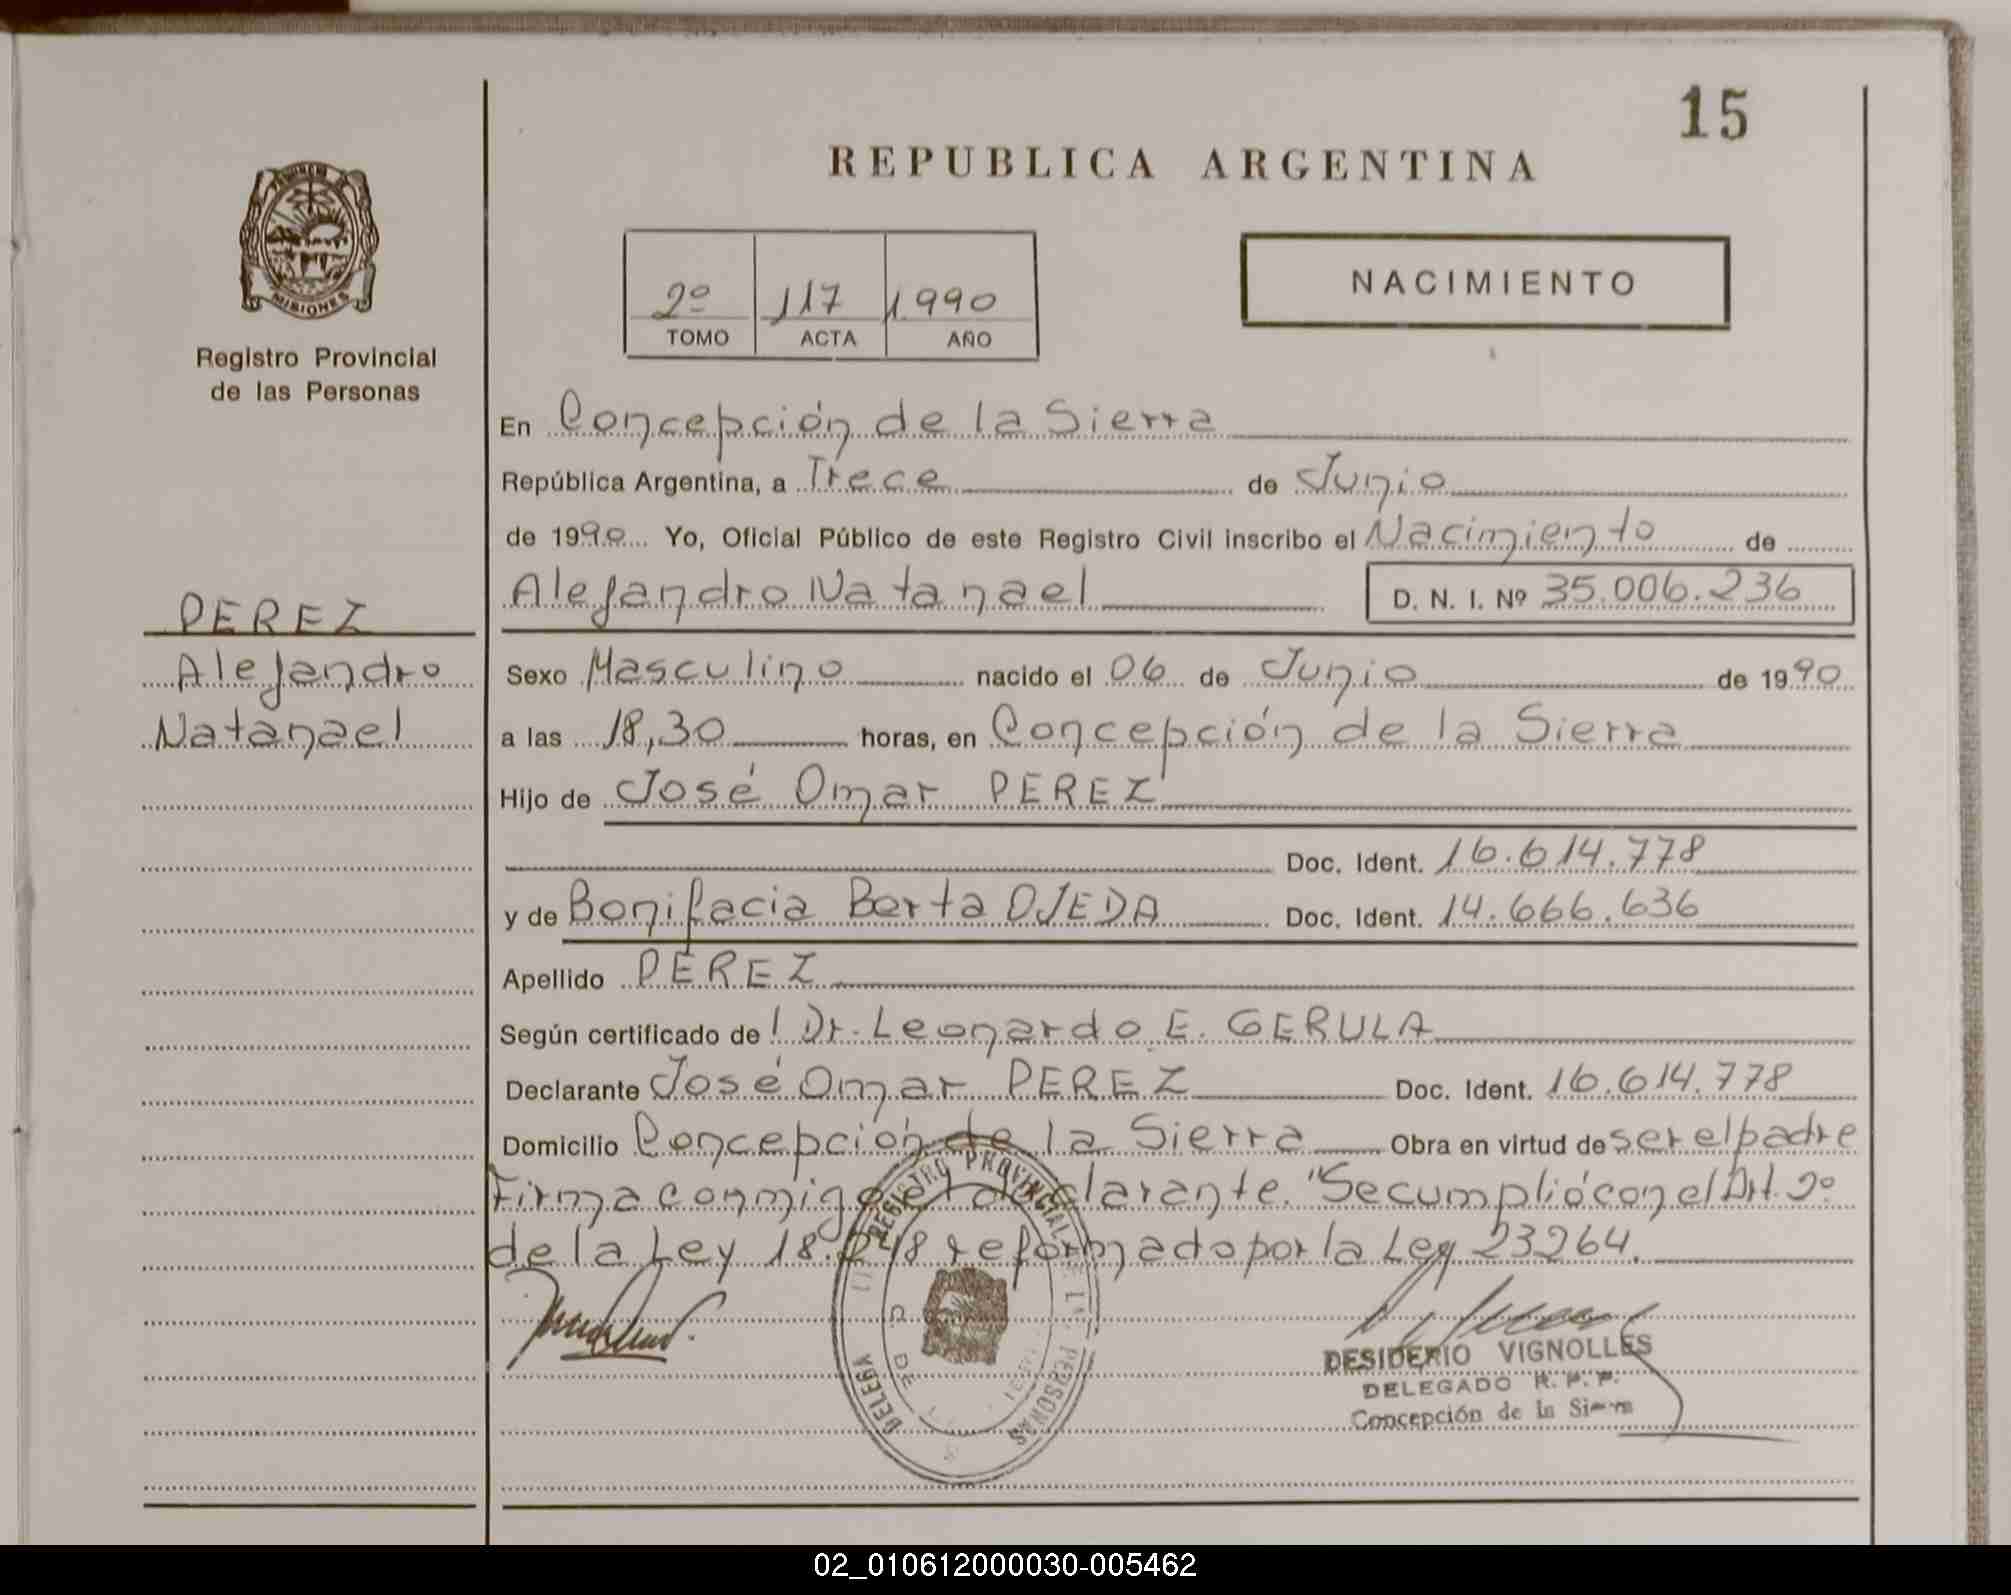 15
REPUBLICA ARGENTINA
MISIONES
Registro Provincial
de las Personas
2º 117 1990
TOMO ACTA AÑO
NACIMIENTO
En Concepción de la Sierra
República Argentina, a Trece de Junio
de 1990 Yo, Oficial Público de este Registro Civil inscribo el Nacimiento de
Alejandro Natanael D. N. I. Nº 35.006.236
PEREZ
Alejandro
Natanael
Sexo Masculino nacido el 06 de Junio de 1990
a las 18,30 horas, en Concepción de la Sierra
Hijo de José Omar PEREZ
Doc. Ident. 16.614.778
y de Bonifacia Berta OJEDA Doc. Ident. 14.666.636
Apellido PEREZ
Según certificado de l Dr. Leonardo E. GERULA
Declarante José Omar PEREZ Doc. Ident. 16.614.778
Domicilio Concepción de la Sierra Obra en virtud de ser el padre
Firma conmigo el declarante. "Se cumplió con el Art. 2º
de la Ley 18.248 reformado por la Ley 23264.
REGISTRO PROVINCIAL DE LAS PERSONAS
DESIDERIO VIGNOLLES
DELEGADO R. P. P.
Concepción de la Sierra
02_010612000030-005462